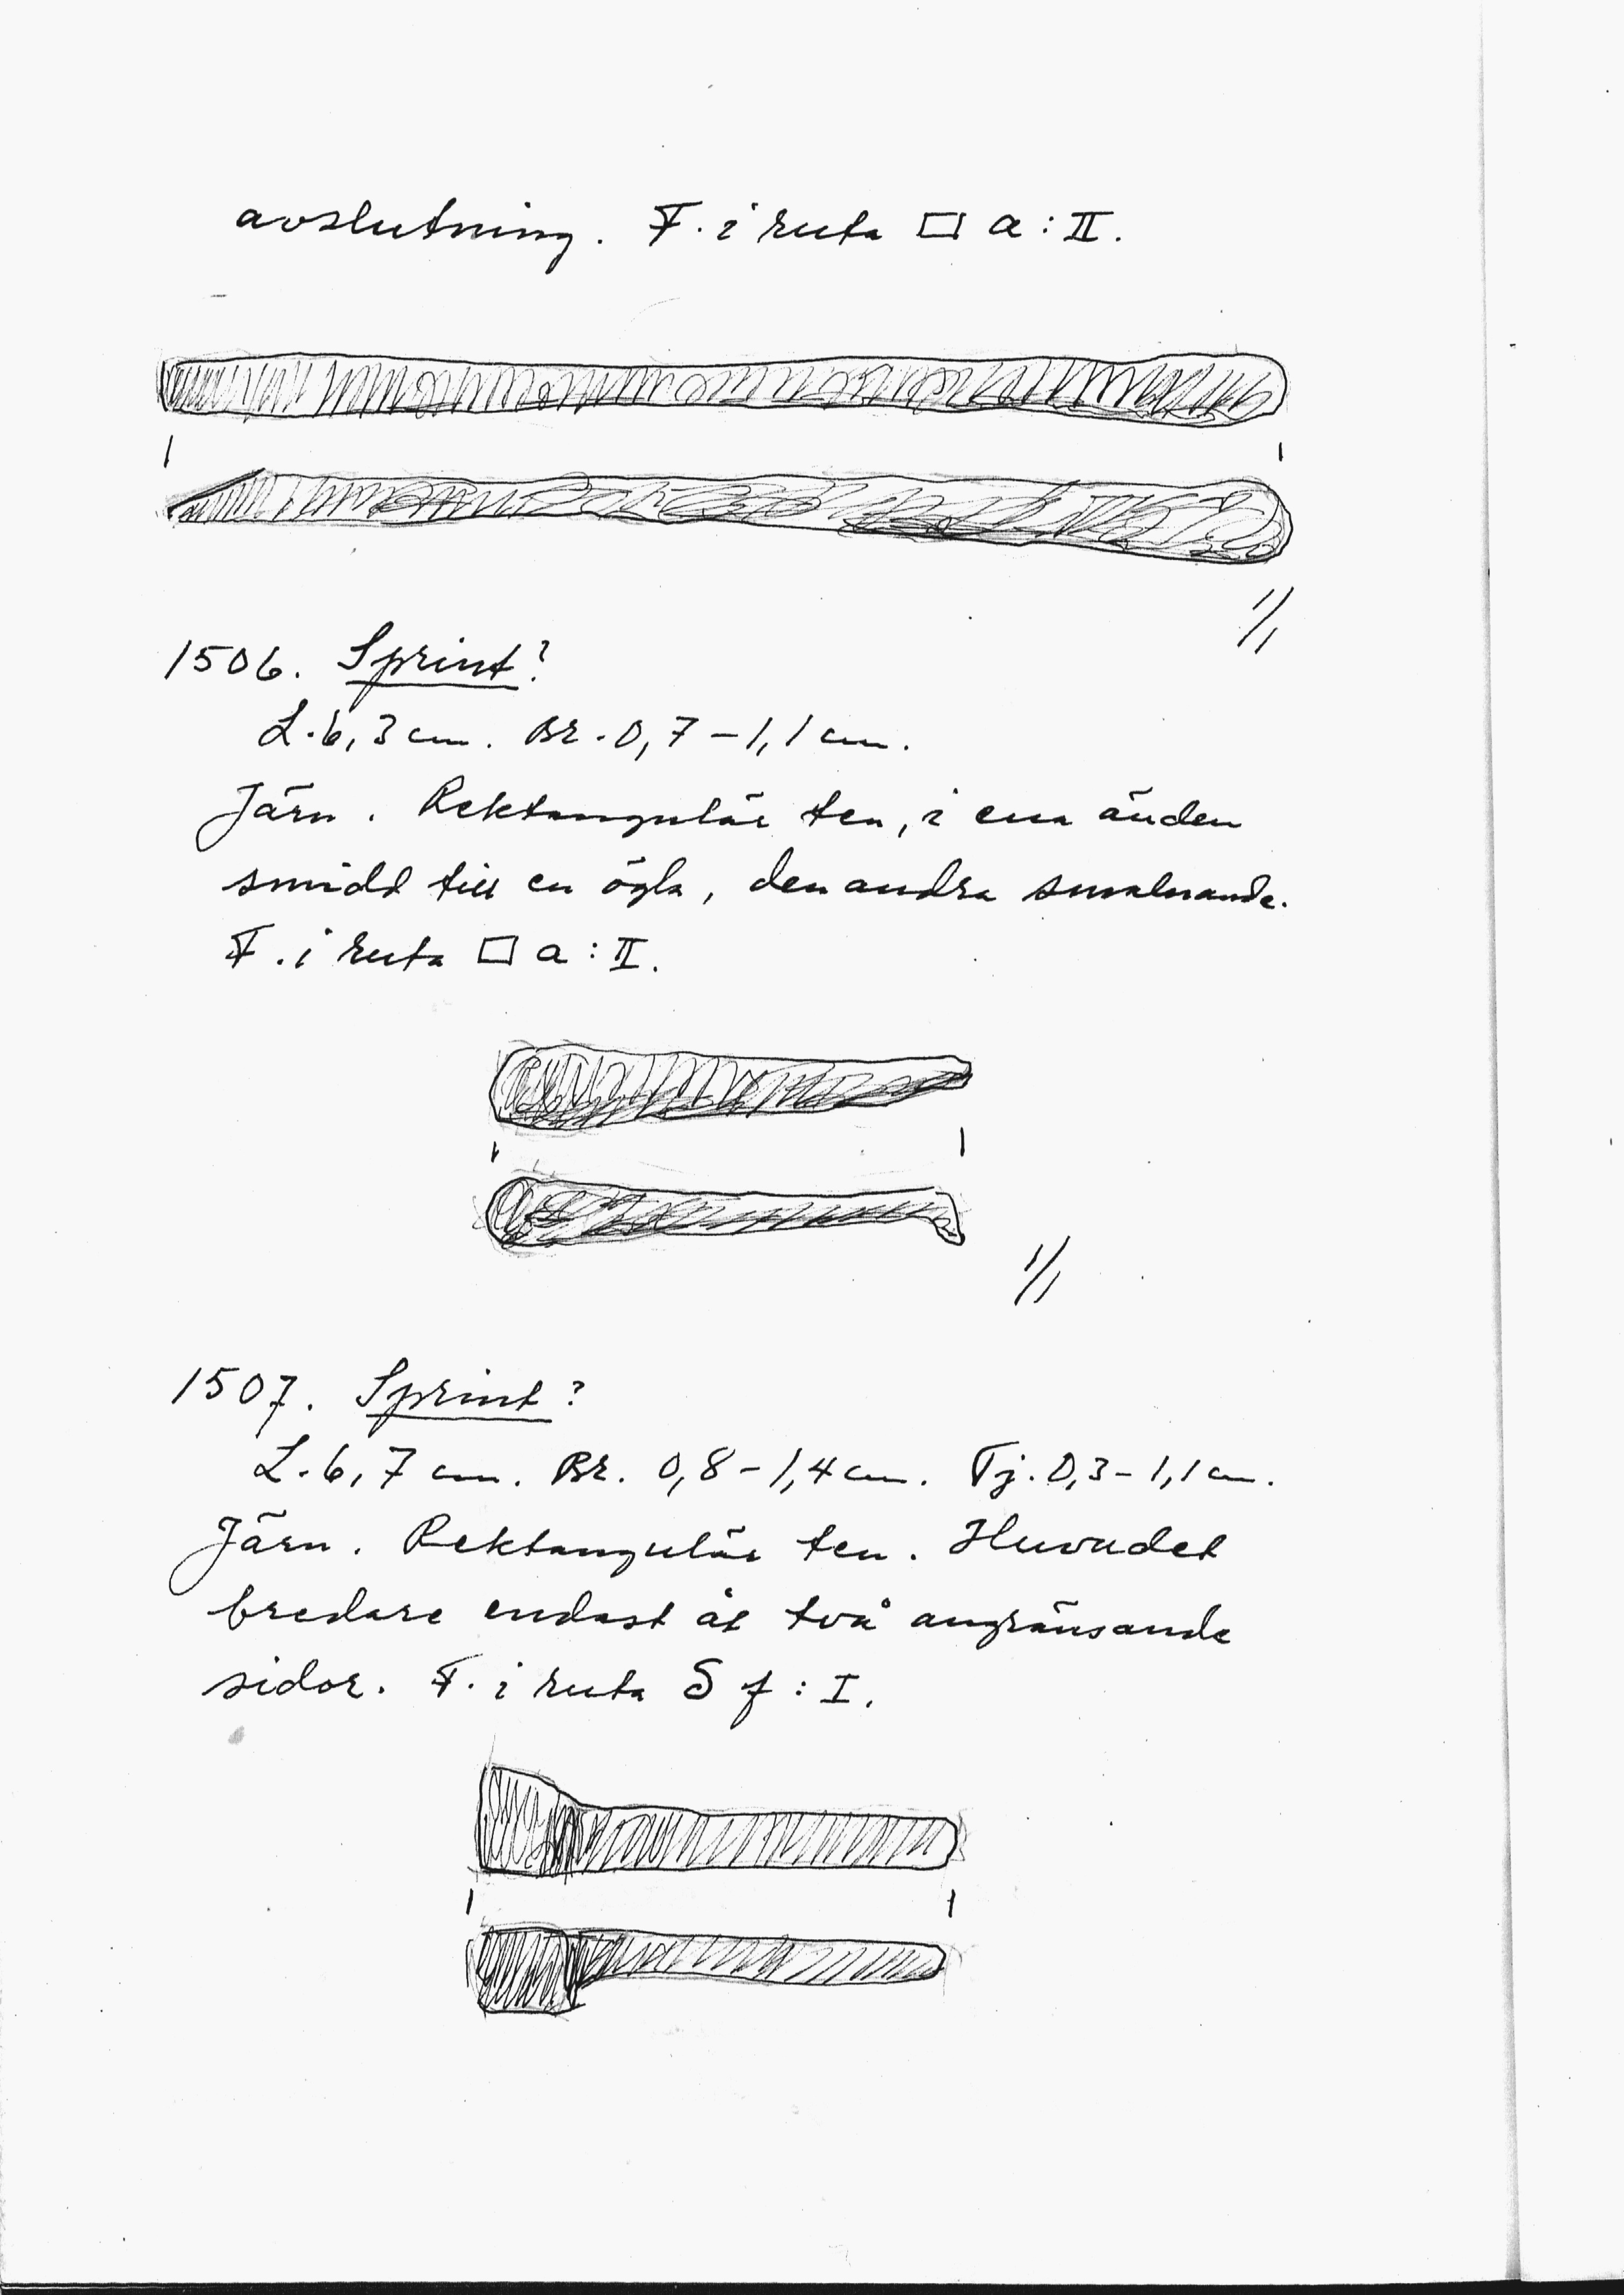 avslutning. F. i ruta □ a : II.
1/1
1506. Sprint?
L. 6,3 cm. Br. 0,7 – 1,1 cm.
Järn. Rektangulär ten, i ena änden
smidd till en ögla, den andra smalnande.
F. i ruta □ a : II.
1/1
1507. Sprint?
L. 6,7 cm. Br. 0,8 – 1,4 cm. Tj. 0,3 – 1,1 cm.
Järn. Rektangulär ten. Huvudet
bredare endast åt två angränsande
sidor. F. i ruta S f : I.